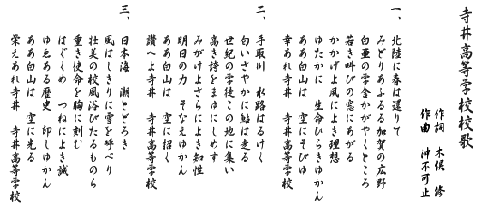 寺井高等学校校歌
作詞 木俣 修
作曲 沖不可止
一、
北陸に春は還りて
みどりあふるる加賀の広野
白亜の学舎かがやくところ
若き叫びの窓にあがる
かかげよ風によき理想
ゆたかに 生命ひらきゆかん
ああ白山は 空にそびゆ
幸あれ寺井 寺井高等学校
二、
手取川 水路はるけく
匂いさやかに鮎は走る
世紀の学徒この地に集い
高き誇をまゆにしめす
みがけよさらによき知性
明日の力 そなえゆかん
ああ白山は 空に招く
讃へよ寺井 寺井高等学校
三、
日本海 潮とどろき
風はしきりに雲を呼べり
壮美の校風浴びたるものら
重き使命を胸に刻む
はぐくめ つねによき誠
ゆゑある歴史 印しゆかん
ああ白山は 空に光る
栄えあれ寺井 寺井高等学校